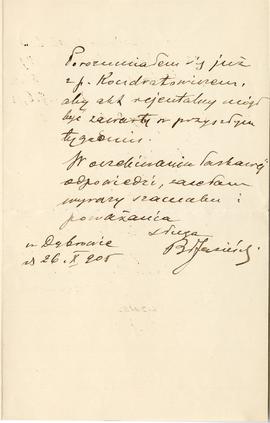 Porozumiałem się już
z p. Kondratowiczem,
aby akt rejentalny mógł
być zawarty w przyszłym
tygodniu.
W oczekiwaniu łaskawej
odpowiedzi, zasełam
wyrazy szacunku i
poważania
sługa
w Dąbrowie
26. X 905